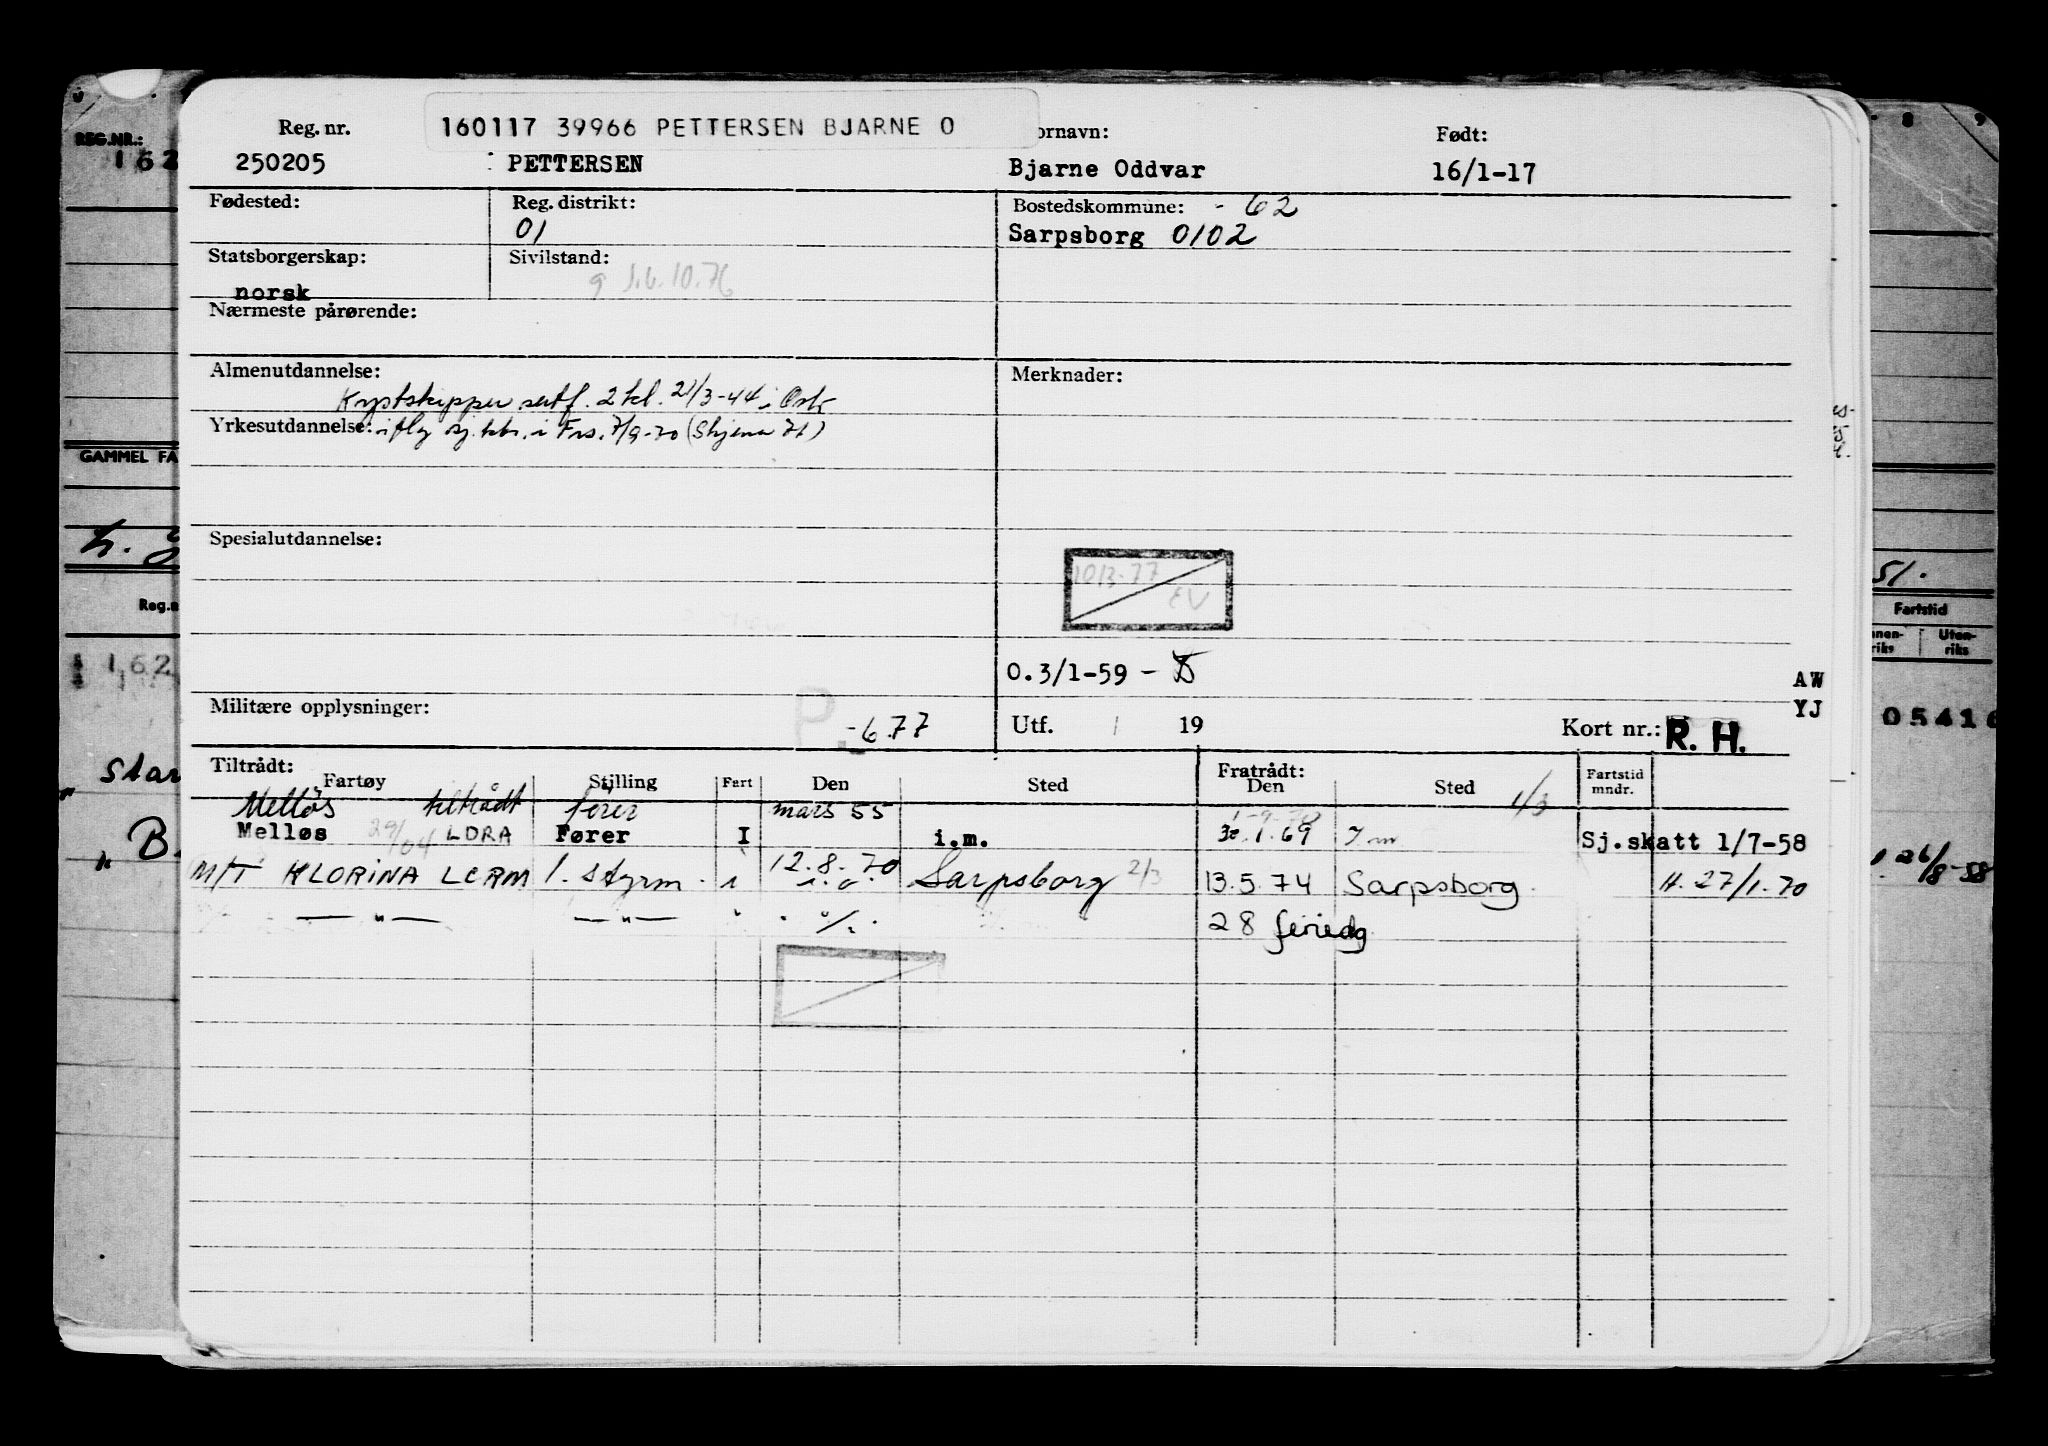 160117 39966 PETTERSEN BJARNE O
Reg. nr. ornavn: Født:
250205 PETTERSEN Bjarne Oddvar 16/1-17
Fødested: Reg. distrikt: Bostedskommune: - 62
01 Sarpsborg 0102
Statsborgerskap: Sivilstand:
norsk
Nærmeste pårørende:
Almenutdannelse: Merknader:
Kystskipper sertf. 2 kl. 21/3-44
Yrkesutdannelse: i Frs. 7/9-70 (Skjema 71)
Spesialutdannelse:
1013-77
EV
0.3/1-59 -
Militære opplysninger: P. -6.77 Utf. 19 Kort nr.: R. H.
AW
YJ
Tiltrådt: Fratrådt:
Fartøy Stilling Fart Den Sted Den Sted Fartstid mndr.
Melløs tiltrådt fører mars 55 1-9-70 1/3
Melløs 29/04 LDRA Fører I i.m. 30.1.69 Sj.skatt 1/7-58
M/T KLORINA LCRM 1. styrm. i 12.8.70 Sarpsborg 2/3 13.5.74 Sarpsborg. H. 27/1.70
— " — — " — " 28 feriedg
REG.NR.:
162
GAMMEL FA
Reg.n
162
Star
" B.
8 9
51.
Fartstid
nnen-riks Uten-riks
05416
26/8-58